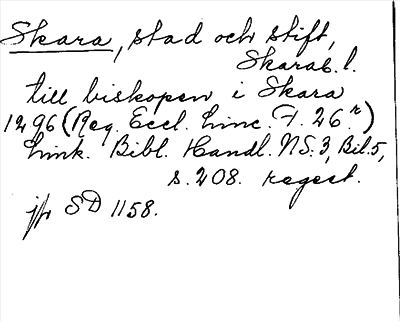 Skara, stad och stift,
Skarab. l.
till biskopen i Skara
1296 (Reg. Eccl. Linc. F. 26 r)
Link. Bibl. Handl. NS. 3, Bil. 5,
s. 208. regest.
jfr SD 1158.